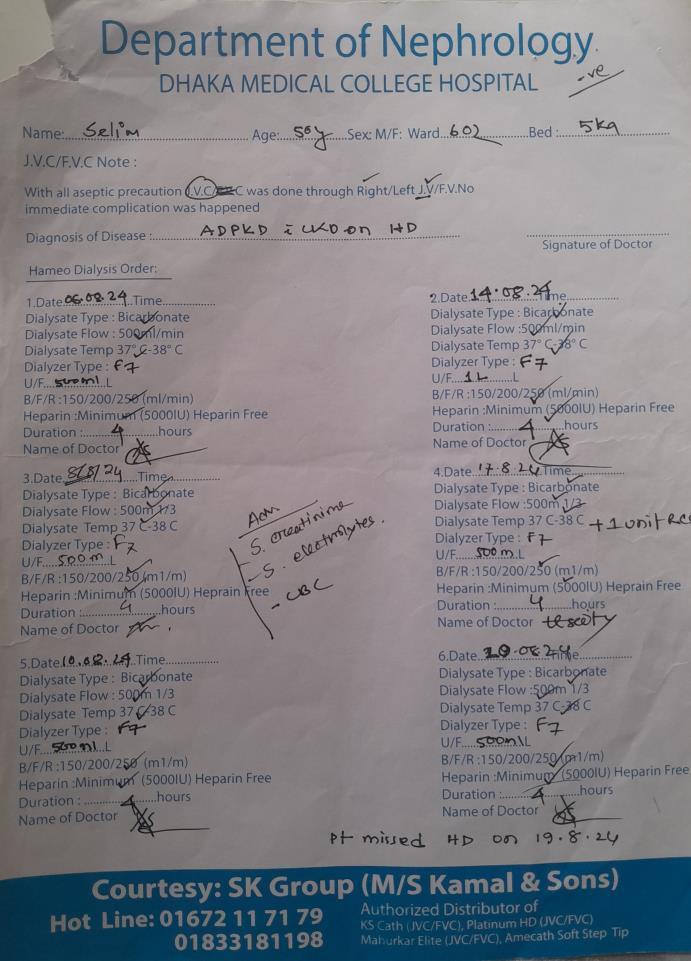 Department of Nephrology
DHAKA MEDICAL COLLEGE HOSPITAL
-ve
Name: Selim Age: 50y Sex: M/F: Ward 602 Bed : 5kg
J.V.C/F.V.C Note :
With all aseptic precaution J.V.C/ C was done through Right/Left J.V/F.V.No
immediate complication was happened
Diagnosis of Disease : ADPKD c CKD on HD
Signature of Doctor
Hameo Dialysis Order:
1.Date 06.08.24 Time
Dialysate Type : Bicarbonate
Dialysate Flow : 500ml/min
Dialysate Temp 37° C-38° C
Dialyzer Type : F7
U/F 500ml L
B/F/R :150/200/250 (ml/min)
Heparin :Minimum (5000IU) Heparin Free
Duration : 4 hours
Name of Doctor
2.Date 14.08.24 Time
Dialysate Type : Bicarbonate
Dialysate Flow :500ml/min
Dialysate Temp 37° C-38° C
Dialyzer Type : F7
U/F 1L L
B/F/R :150/200/250 (ml/min)
Heparin :Minimum (5000IU) Heparin Free
Duration : 4 hours
Name of Doctor
3.Date 8/8/24 Time
Dialysate Type : Bicarbonate
Dialysate Flow : 500m 1/3
Dialysate Temp 37 C-38 C
Dialyzer Type : F7
U/F 500m L
B/F/R :150/200/250 (m1/m)
Heparin :Minimum (5000IU) Heprain Free
Duration : 4 hours
Name of Doctor
Adv
S. creatinine
- S. electrolytes.
- CBC
4.Date 17.8.24 Time
Dialysate Type : Bicarbonate
Dialysate Flow : 500m 1/3
Dialysate Temp 37 C-38 C + 1 unit RCC
Dialyzer Type : F7
U/F 500m L
B/F/R :150/200/250 (m1/m)
Heparin :Minimum (5000IU) Heprain Free
Duration : 4 hours
Name of Doctor
5.Date 10.08.24 Time
Dialysate Type : Bicarbonate
Dialysate Flow : 500m 1/3
Dialysate Temp 37 C-38 C
Dialyzer Type : F7
U/F 500ml L
B/F/R :150/200/250 (m1/m)
Heparin :Minimum (5000IU) Heparin Free
Duration : 4 hours
Name of Doctor
6.Date 20.08.24 Time
Dialysate Type : Bicarbonate
Dialysate Flow :500m 1/3
Dialysate Temp 37 C-38 C
Dialyzer Type : F7
U/F 500ml L
B/F/R :150/200/250 (m1/m)
Heparin :Minimum (5000IU) Heparin Free
Duration : 4 hours
Name of Doctor
Pt missed HD on 19.8.24
Courtesy: SK Group (M/S Kamal & Sons)
Hot Line: 01672 11 71 79
01833181198
Authorized Distributor of
KS Cath (JVC/FVC), Platinum HD (JVC/FVC)
Mahurkar Elite (JVC/FVC), Amecath Soft Step Tip